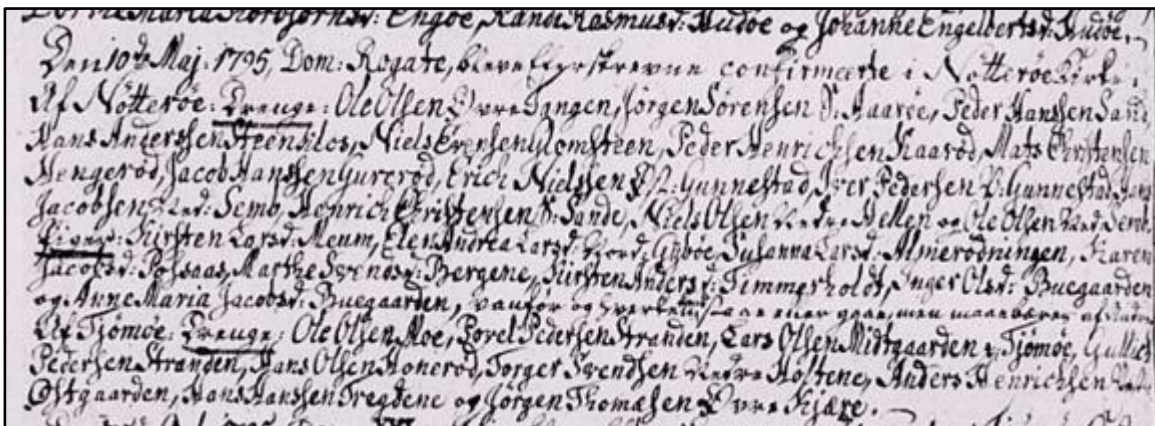 Maria Torbjørnsd: Engøe, Randi Rasmusd: Hudøe og Johanne Engelbertsd: Hudøe.
Den 10de Maj: 1795, Dom: Rogate, bleve confirmerte i Nötterøe Kirke:
Af Nötterøe: Drenge: Ole Olsen Øvre Tangen, Jørgen Sörensen S: Aarøe, Peder Hanssen Sand,
Hans Anderssen Steensilos, Niels Evensen Glomsteen, Peder Henrichsen Kaarød, Mats Christensen
Hengerød, Jacob Hanssen Gurerød, Erich Nielssen N: Gunnestad, Iver Pedersen Gunnestad, Hans
Jacobsen Ned: Semo, Henrich Christensen S: Sande, Niels Olsen Nedre Hellen og Ole Olsen Ned: Semo.
Piger: Kirsten Larsd: Meum, Elen Andrea Larsd: Susanna Larsd: Almerødningen, Karen
Jacobsd: Marthe Svendsd: Bergene, Kirsten Andersd: Timmerholdt, Inger Olsd: Buegaarden
og Anne Maria Jacobsd: Buegaarden, vanfør og gaae, men maae bæres af
Af Tjömøe: Drenge: Ole Olsen Moe, Povel Pedersen Stranden, Lars Olsen Midtgaarden i Tjömøe, Gullich
Pedersen Stranden, Hans Olsen Honerød, Torger Svendsen Nedre Holtene, Anders Henrichsen
Østgaarden, Hans Hanssen Tregdene og Jörgen Thomasen Øvre Kjære.